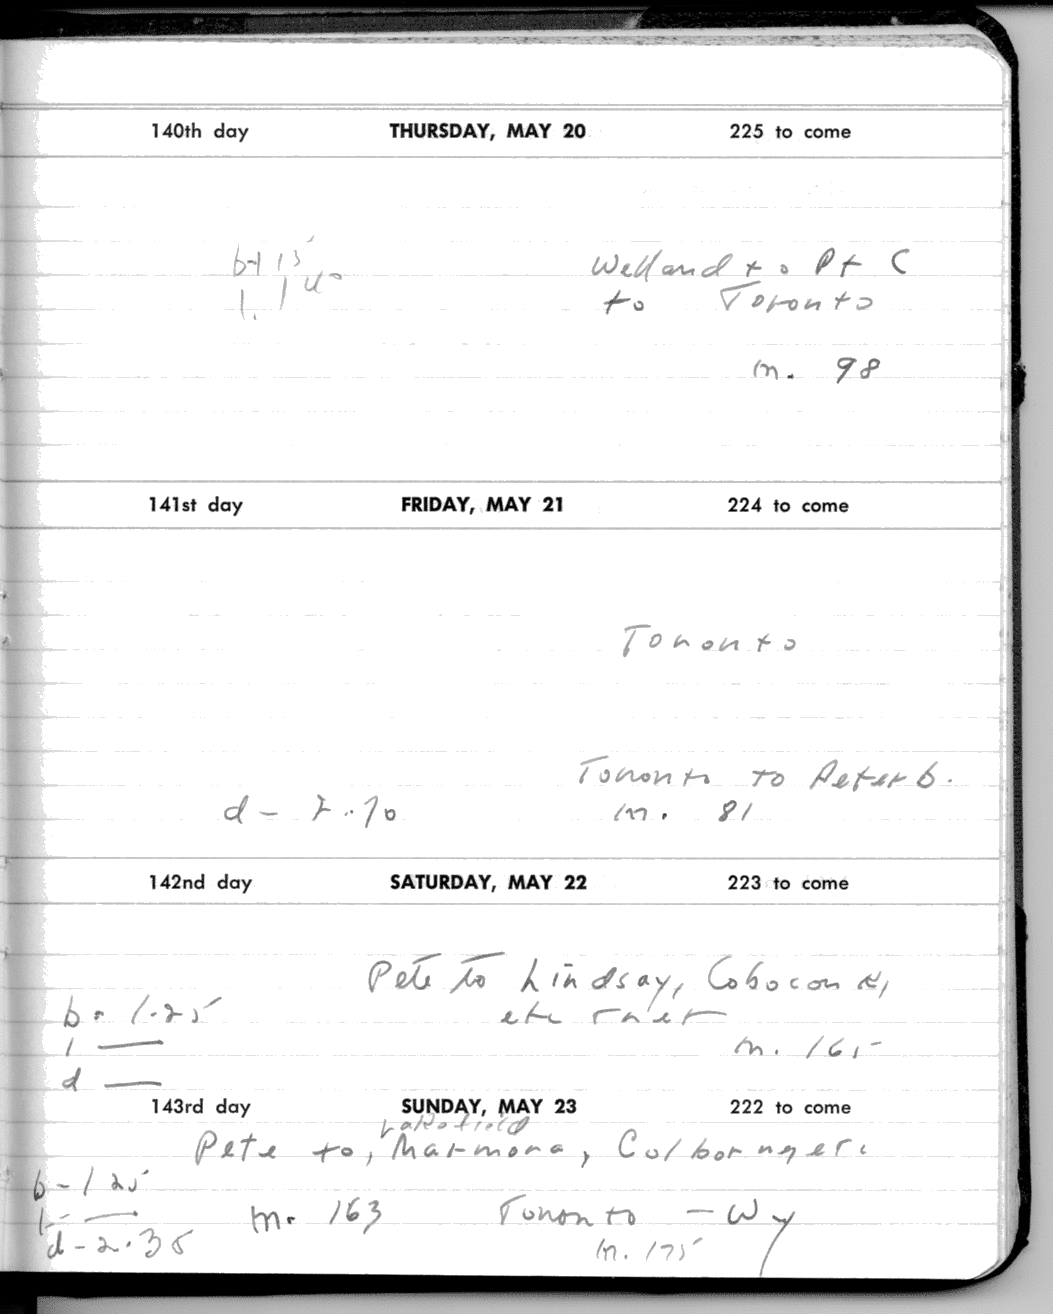 140th day THURSDAY, MAY 20 225 to come
b-1 15 Welland to Pt C
l. 1 40 to Toronto
m. 98
141st day FRIDAY, MAY 21 224 to come
Toronto
Toronto to Peterb.
d - 7.70 m. 81
142nd day SATURDAY, MAY 22 223 to come
Pete to Lindsay, Coboconk,
b - 1.25 etc
l — m. 165
d —
143rd day SUNDAY, MAY 23 222 to come
Lakefield
Pete to, Marmora, Colborn
b - 1 25
l - — m. 163 Toronto - Wy
d - 2.35 m. 175